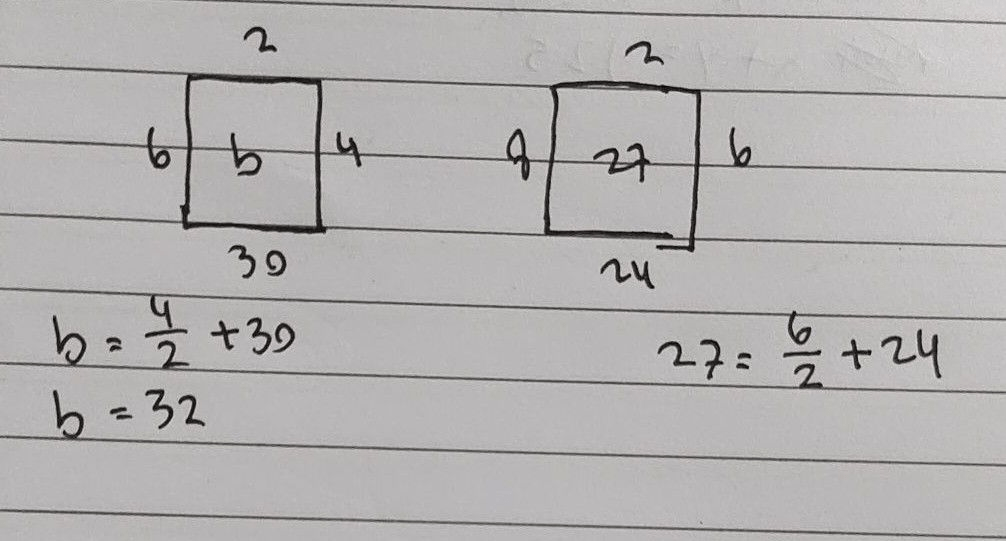 2 2
6 b 4 8 27 6
30 24
b = 4/2 + 30 27 = 6/2 + 24
b = 32